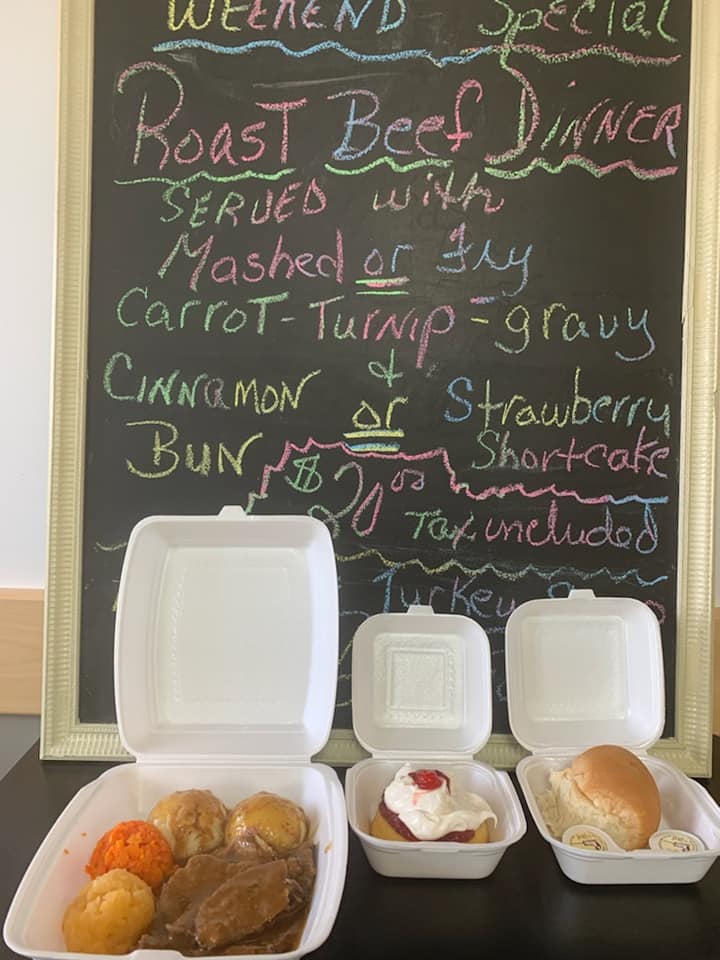 WEEKEND Special
Roast Beef DINNER
SERVED with
Mashed or Fry
Carrot-Turnip-gravy
&
CINNAMON or Strawberry
BUN Shortcake
$20.00 Tax included
Turkey